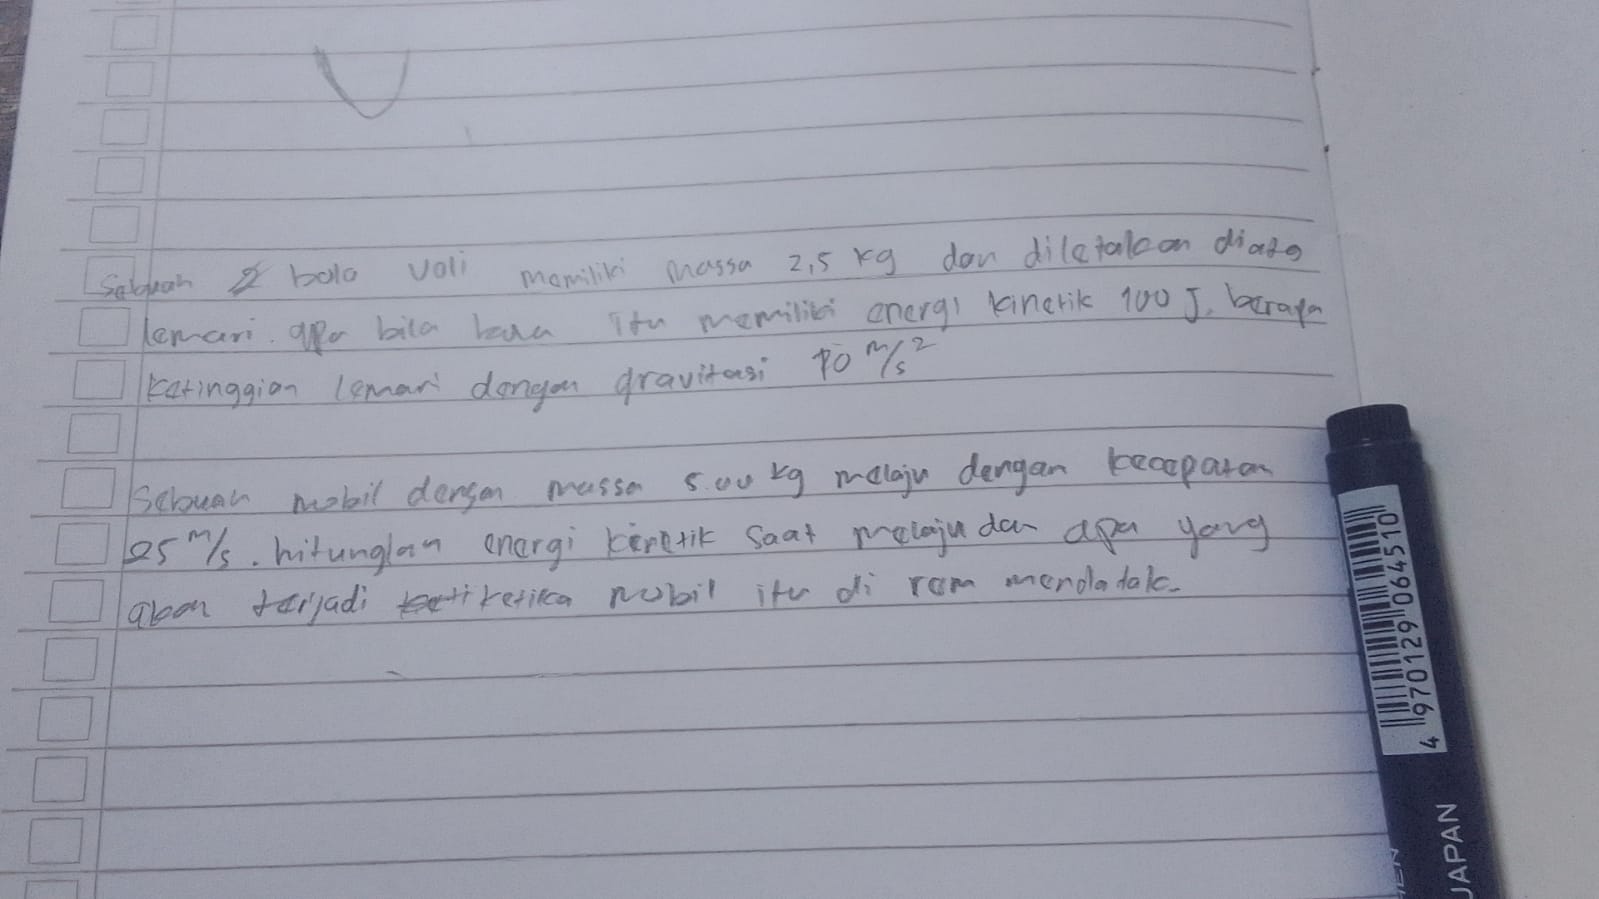 Sebuah bola voli memiliki massa 2,5 kg dan diletakan diatas
lemari. apa bila bola itu memiliki energi kinetik 100 J. berapa
ketinggian lemari dengan gravitasi 10 m/s²
Sebuah mobil dengan massa 5.00 kg melaju dengan kecepatan
25 m/s. hitunglah energi kinetik saat melaju dan apa yang
akan terjadi ketika mobil itu di rem mendadak.
4 970129 064510
JAPAN